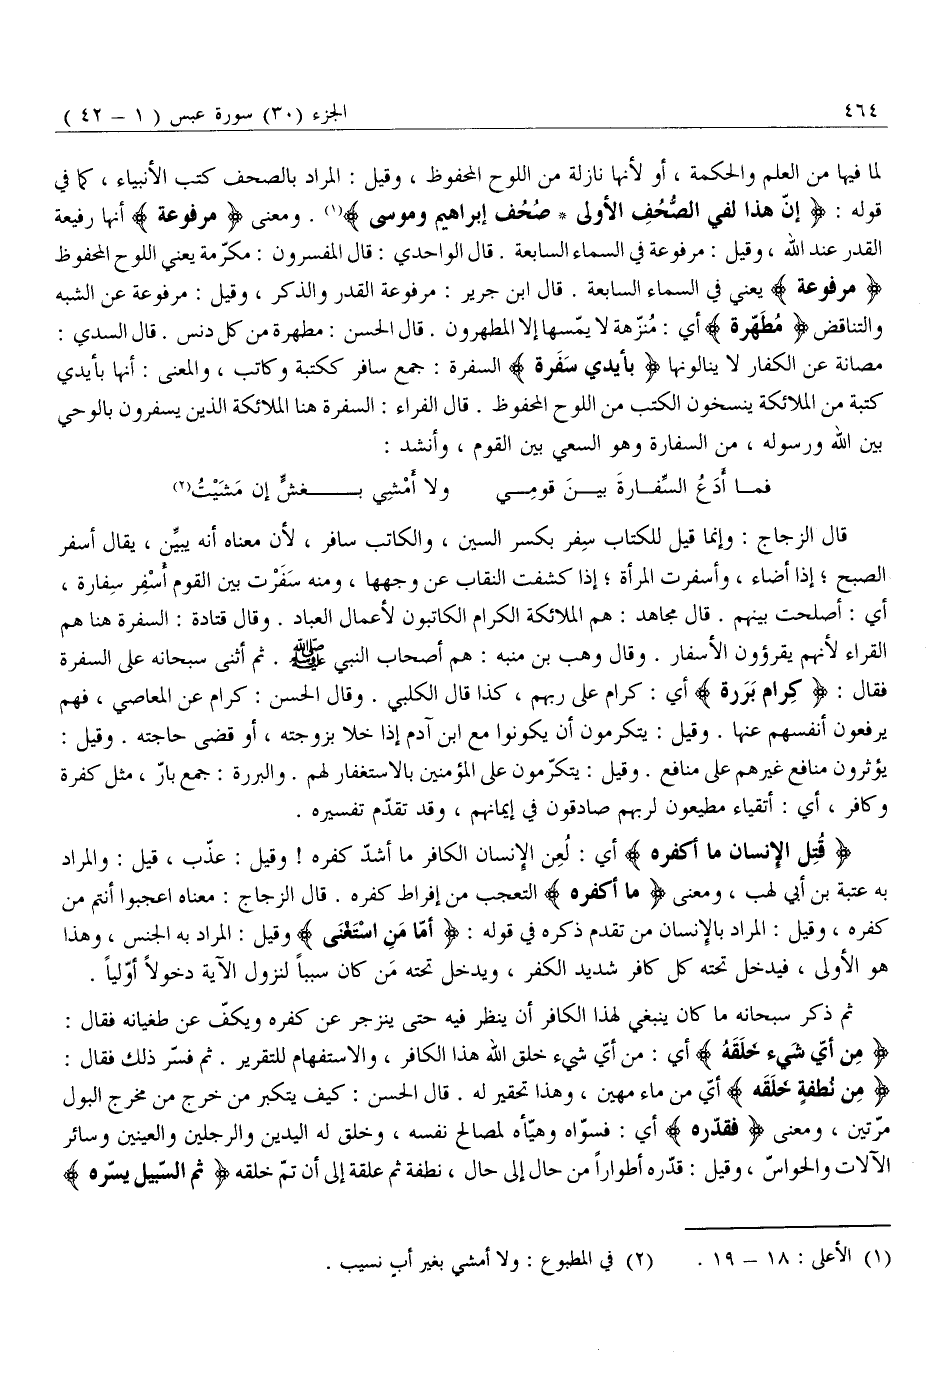 ٤٦٤
الجزء (٣٠) سورة عبس ( ١ – ٤٢ )
لما فيها من العلم والحكمة ، أو لأنها نازلة من اللوح المحفوظ ، وقيل : المراد بالصحف كتب الأنبياء ، كما في
قوله : ﴿ إنّ هذا لفي الصُّحُفِ الأولى * صُحُف إبراهيم وموسى ﴾(١) . ومعنى ﴿ مرفوعة ﴾ أنها رفيعة
القدر عند الله ، وقيل : مرفوعة في السماء السابعة . قال الواحدي : قال المفسرون : مكرّمة يعني اللوح المحفوظ
﴿ مرفوعة ﴾ يعني في السماء السابعة . قال ابن جرير : مرفوعة القدر والذكر ، وقيل : مرفوعة عن الشبه
والتناقض ﴿ مُطَهّرة ﴾ أي : مُنزّهة لا يمّسها إلا المطهرون . قال الحسن : مطهرة من كل دنس . قال السدي :
مصانة عن الكفار لا ينالونها ﴿ بأيدي سَفَرة ﴾ السفرة : جمع سافر ككتبة وكاتب ، والمعنى : أنها بأيدي
كتبة من الملائكة ينسخون الكتب من اللوح المحفوظ . قال الفراء : السفرة هنا الملائكة الذين يسفرون بالوحي
بين الله ورسوله ، من السفارة وهو السعي بين القوم ، وأنشد :
فمـا أَدَعُ السِّفـارةَ بيـنَ قومـي ولا أَمْشِي بـغشٍّ إن مَشَيْتُ(٢)
قال الزجاج : وإنما قيل للكتاب سِفر بكسر السين ، والكاتب سافر ، لأن معناه أنه يبيِّن ، يقال أسفر
الصبح ؛ إذا أضاء ، وأسفرت المرأة ؛ إذا كشفت النقاب عن وجهها ، ومنه سَفَرْت بين القوم أَسْفِر سِفارة ،
أي : أصلحت بينهم . قال مجاهد : هم الملائكة الكرام الكاتبون لأعمال العباد . وقال قتادة : السفرة هنا هم
القراء لأنهم يقرؤون الأسفار . وقال وهب بن منبه : هم أصحاب النبي ﷺ . ثم أثنى سبحانه على السفرة
فقال : ﴿ كِرام بَرَرة ﴾ أي : كرام على ربهم ، كذا قال الكلبي . وقال الحسن : كرام عن المعاصي ، فهم
يرفعون أنفسهم عنها . وقيل : يتكرمون أن يكونوا مع ابن آدم إذا خلا بزوجته ، أو قضى حاجته . وقيل :
يؤثرون منافع غيرهم على منافع . وقيل : يتكرّمون على المؤمنين بالاستغفار لهم . والبررة : جمع بارّ ، مثل كفرة
وكافر ، أي : أتقياء مطيعون لربهم صادقون في إيمانهم ، وقد تقدّم تفسيره .
﴿ قُتِل الإنسان ما أكفره ﴾ أي : لُعِن الإنسان الكافر ما أشدّ كفره ! وقيل : عذّب ، قيل : والمراد
به عتبة بن أبي لهب ، ومعنى ﴿ ما أكفره ﴾ التعجب من إفراط كفره . قال الزجاج : معناه اعجبوا أنتم من
كفره ، وقيل : المراد بالإنسان من تقدم ذكره في قوله : ﴿ أمّا مَنِ اسْتَغْنَى ﴾ وقيل : المراد به الجنس ، وهذا
هو الأولى ، فيدخل تحته كل كافر شديد الكفر ، ويدخل تحته مَن كان سبباً لنزول الآية دخولاً أوّلياً .
ثم ذكر سبحانه ما كان ينبغي لهذا الكافر أن ينظر فيه حتى ينزجر عن كفره ويكفّ عن طغيانه فقال :
﴿ مِن أيّ شيء خَلَقَهُ ﴾ أي : من أيّ شيء خلق الله هذا الكافر ، والاستفهام للتقرير . ثم فسّر ذلك فقال :
﴿ مِن نُطفةٍ خَلَقَه ﴾ أيّ من ماء مهين ، وهذا تحقير له . قال الحسن : كيف يتكبر من خرج من مخرج البول
مرّتين ، ومعنى ﴿ فقدّره ﴾ أي : فسوّاه وهيّأه لمصالح نفسه ، وخلق له اليدين والرجلين والعينين وسائر
الآلات والحواسّ ، وقيل : قدّره أطواراً من حال إلى حال ، نطفة ثم علقة إلى أن تمّ خلقه ﴿ ثم السّبيل يسّره ﴾
(١) الأعلى : ١٨ – ١٩ . (٢) في المطبوع : ولا أمشي بغير أبٍ نسيب .